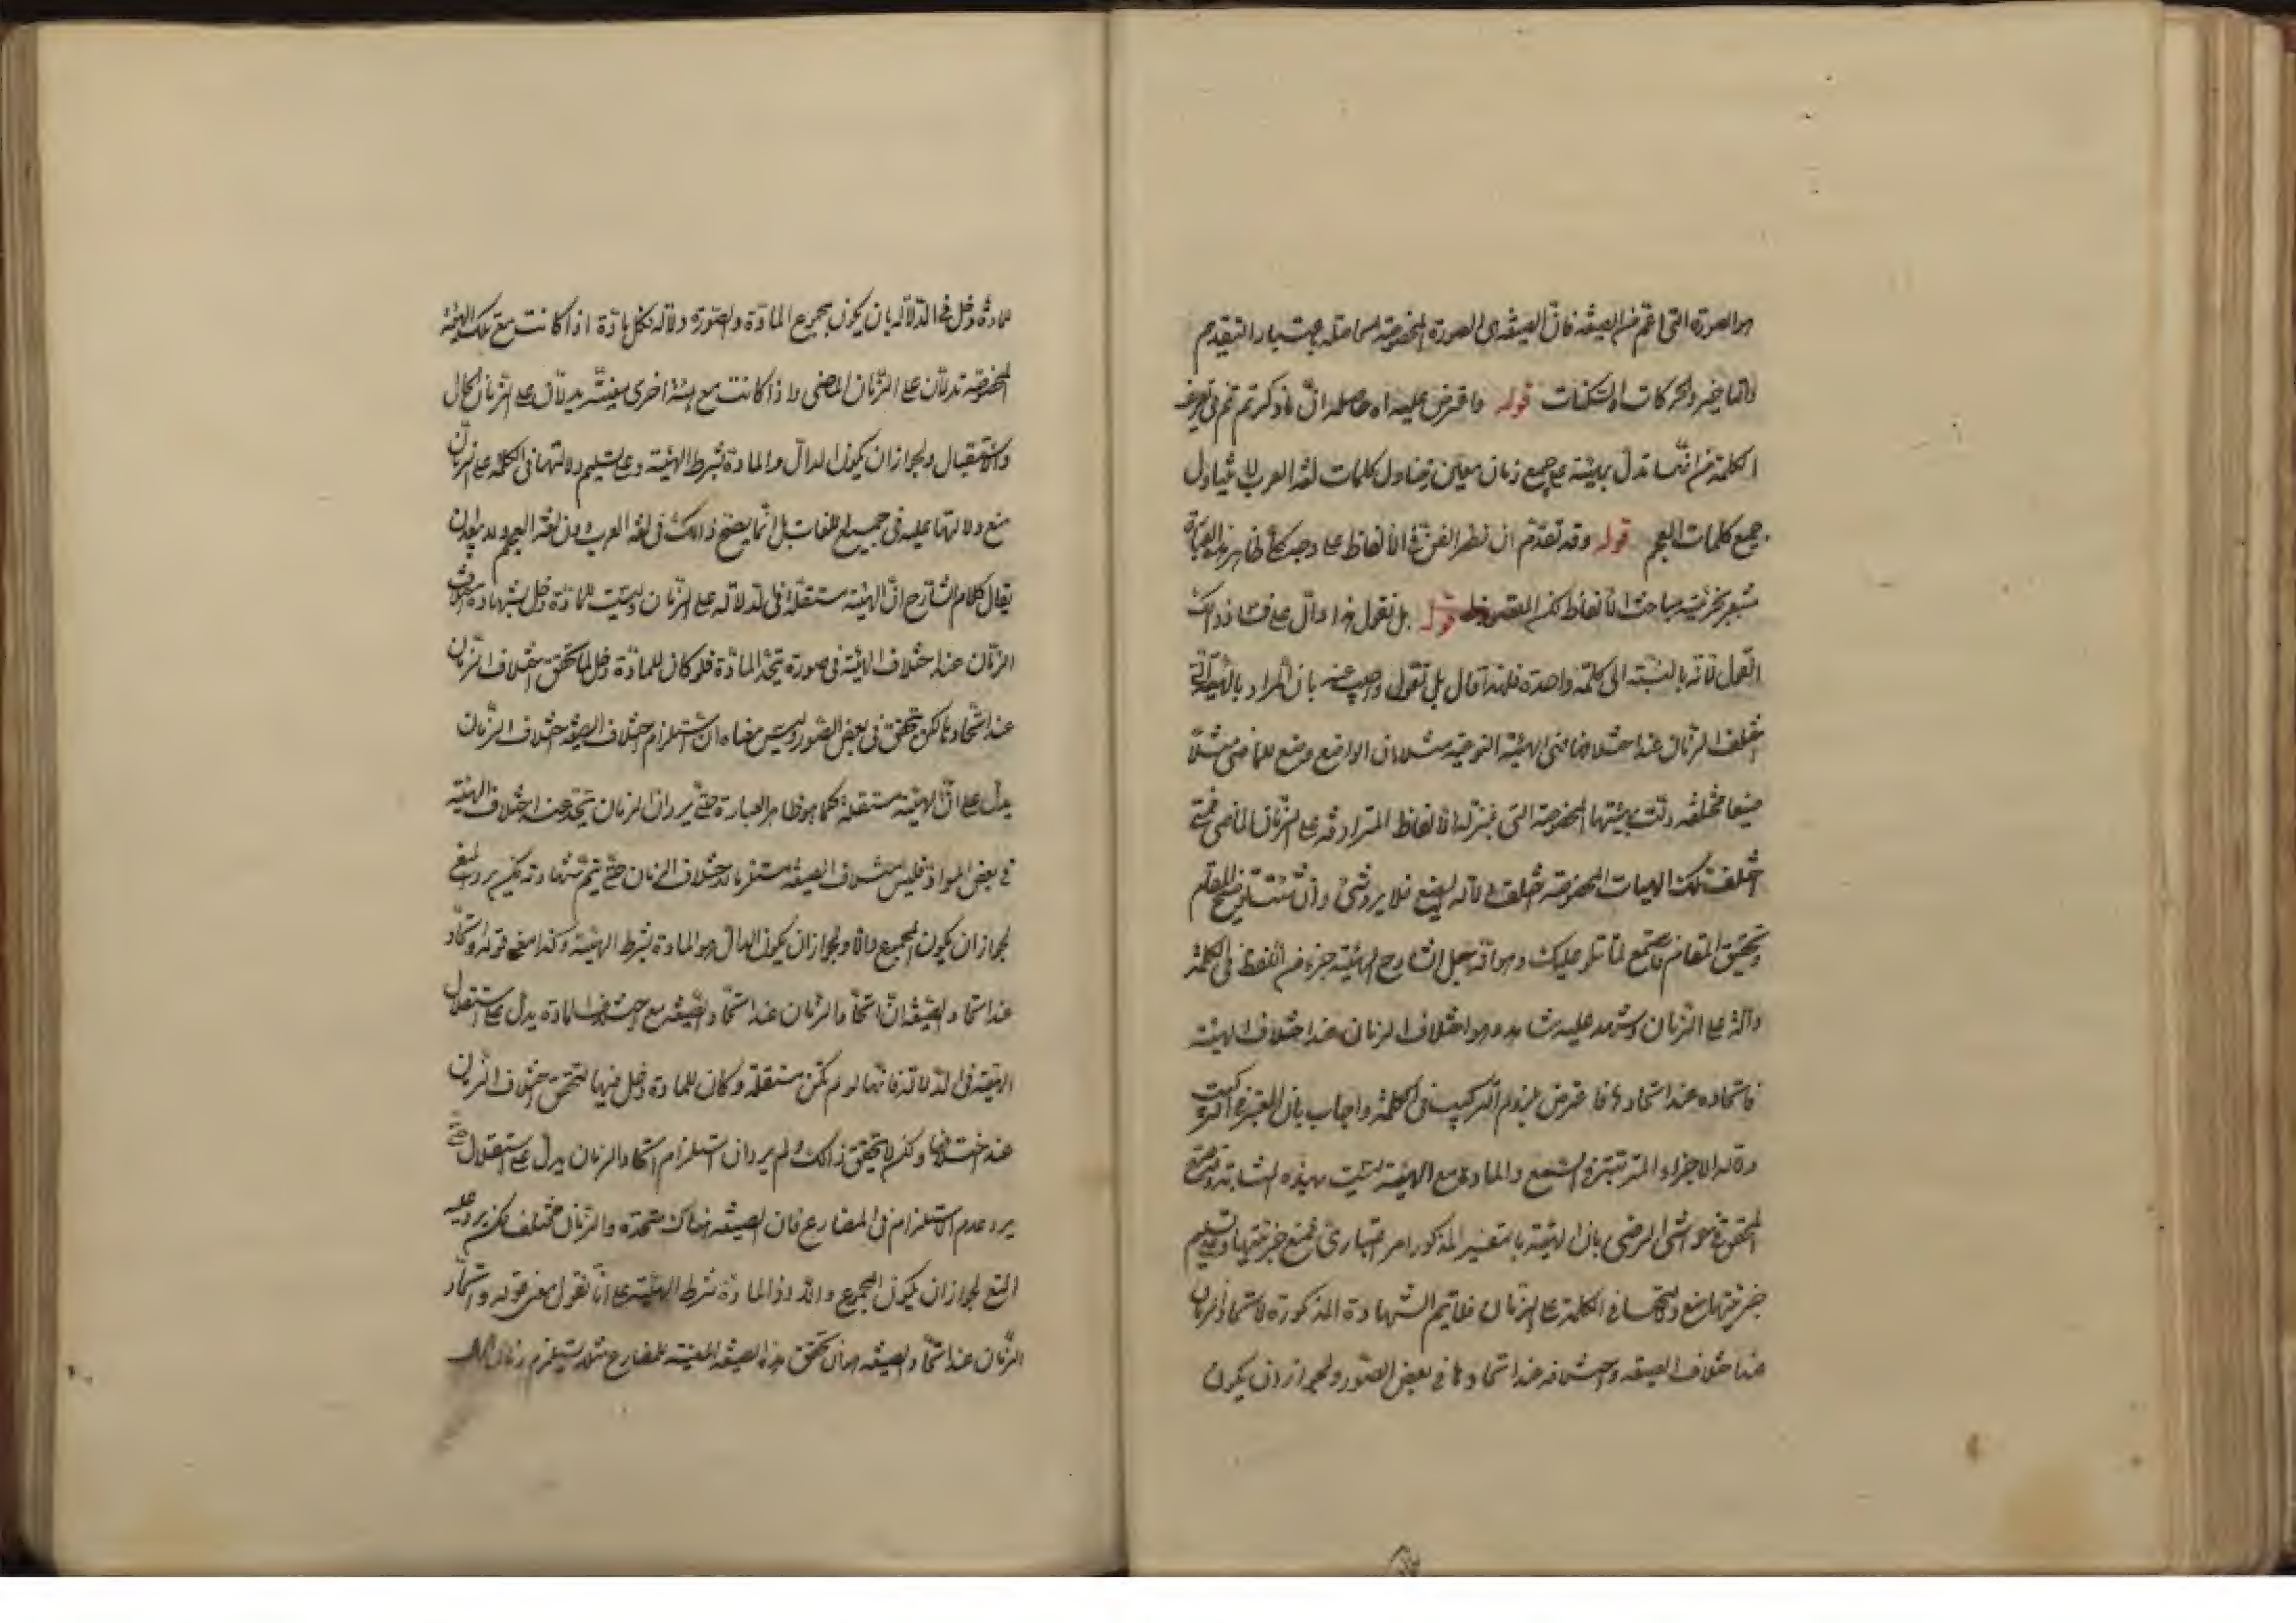 هو الصورة التى اعم من الصيغة فان الصيغة هى الصورة المخصوصة الحاصلة باعتبار التقديم
والتاخير والحركات والسكنات قوله واعترض عليه اه حاصله ان ما ذكرتم تم فى تعريف
الكلمة من انها تدل بهيئته على جميع زمان معين يتناول كلمات لغة العرب لا يتناول
جميع كلمات العجم قوله وقد تقدم ان نظر الفن فى الالفاظ على وجه كلى ظاهر هذه العبارة
مشعر بجزئية مباحث الالفاظ لكن المقصود قوله بل نقول هذا دال على فساد ذلك
القول لانه بالنسبة الى كلمة واحدة فلهذا قال بل نقول واجيب عنه بان المراد بالهيئة التى
يختلف الزمان عند اختلافها هى الهيئة النوعية مثلا بان الواضع وضع للماضى مثلا
صيغا مختلفة دلت بهيئتها المخصوصة التى بمنزلة الالفاظ المترادفة على الزمان الماضى فمتى
اختلفت تلك الهيات المخصوصة اختلف دلالة الوضع فلا يرد شئ وان شئت توضيح المقام
وتحقيق المقام فاستمع لما نتلو عليك وهو انه جعل الشارح الهيئة جزء من اللفظ فى الكلمة
دالة على الزمان واستشهد عليه بشاهد وهو اختلاف الزمان عند اختلاف الهيئة
فاتحاده عند اتحادها فاعترض بلزوم التركيب فى الكلمة واجاب بان المعتبر فى التركيب
دلالة الاجزاء المترتبة فى السمع والمادة مع الهيئة ليست بهذه المثابة
المحقق فى حواشى الرضى بان الهيئة بالتفسير المذكور امر اعتبارى فمنع جزئيتها وبتسليم
جزئيتها منع دلالتها فى الكلمة على الزمان فلا يتم الشهادة المذكورة لاتحاد الزمان
عند اختلاف الصيغة واختلافه عند اتحادها فى بعض الصور ولجواز ان يكون
للمادة دخل فى الدلالة بان يكون بمجموع المادة والصورة دلالة لكل مادة اذا كانت مع تلك الهيئة
المخصوصة تدلان على الزمان الماضى واذا كانت مع هيئة اخرى معينة يدلان على الزمان الحال
والاستقبال ولجواز ان يكون الدال هو المادة بشرط الهيئة وعلى تسليم دلالتها فى الكلمة على الزمان
منع دلالتها عليه فى جميع اللغات بل انما يصح ذلك فى لغة العرب دون لغة العجم
يقال كلام الشارح ان الهيئة مستقلة فى الدلالة على الزمان وليست للمادة دخل بشهادة اختلاف
الزمان عند اختلاف الهيئة فى صورة تحد المادة فلو كان للمادة دخل لما تحقق اختلاف الزمان
عند اتحادها لكن تحقق فى بعض الصور وليس معناه ان استلزام اختلاف الصيغة اختلاف الزمان
يدل على ان الهيئة مستقلة كما هو ظاهر العبارة حتى يرد ان الزمان يتحد عند اختلاف الهيئة
فى بعض المواد فليس اختلاف الصيغة مستلزما لاختلاف الزمان حتى يتم شهادته لكن يرد المنع
لجواز ان يكون المجموع دالا ولجواز ان يكون الدال هو المادة بشرط الهيئة وكذا معنى قوله واتحاد
عند اتحاد الصيغة ان اتحاد الزمان عند اتحاد الصيغة مع اختلاف المادة يدل على استقلال
الهيئة فى الدلالة فانها لو لم تكن مستقلة وكان للمادة دخل فيها لتحقق اختلاف الزمان
عند اختلافها ولكن لا يتحقق ذلك ولم يرد ان استلزام اتحاد الزمان يدل على استقلال حتى
يرد عدم الاستلزام فى المضارع فان الصيغة هناك متحدة والزمان مختلف لكن يرد عليه
المنع لجواز ان يكون المجموع والا والمادة بشرط الهيئة على انا نقول معنى قوله واتحاد
الزمان عند اتحاد الصيغة هو ان تحقق هذه الصيغة المعينة للمضارع مثلا يستلزم زمان